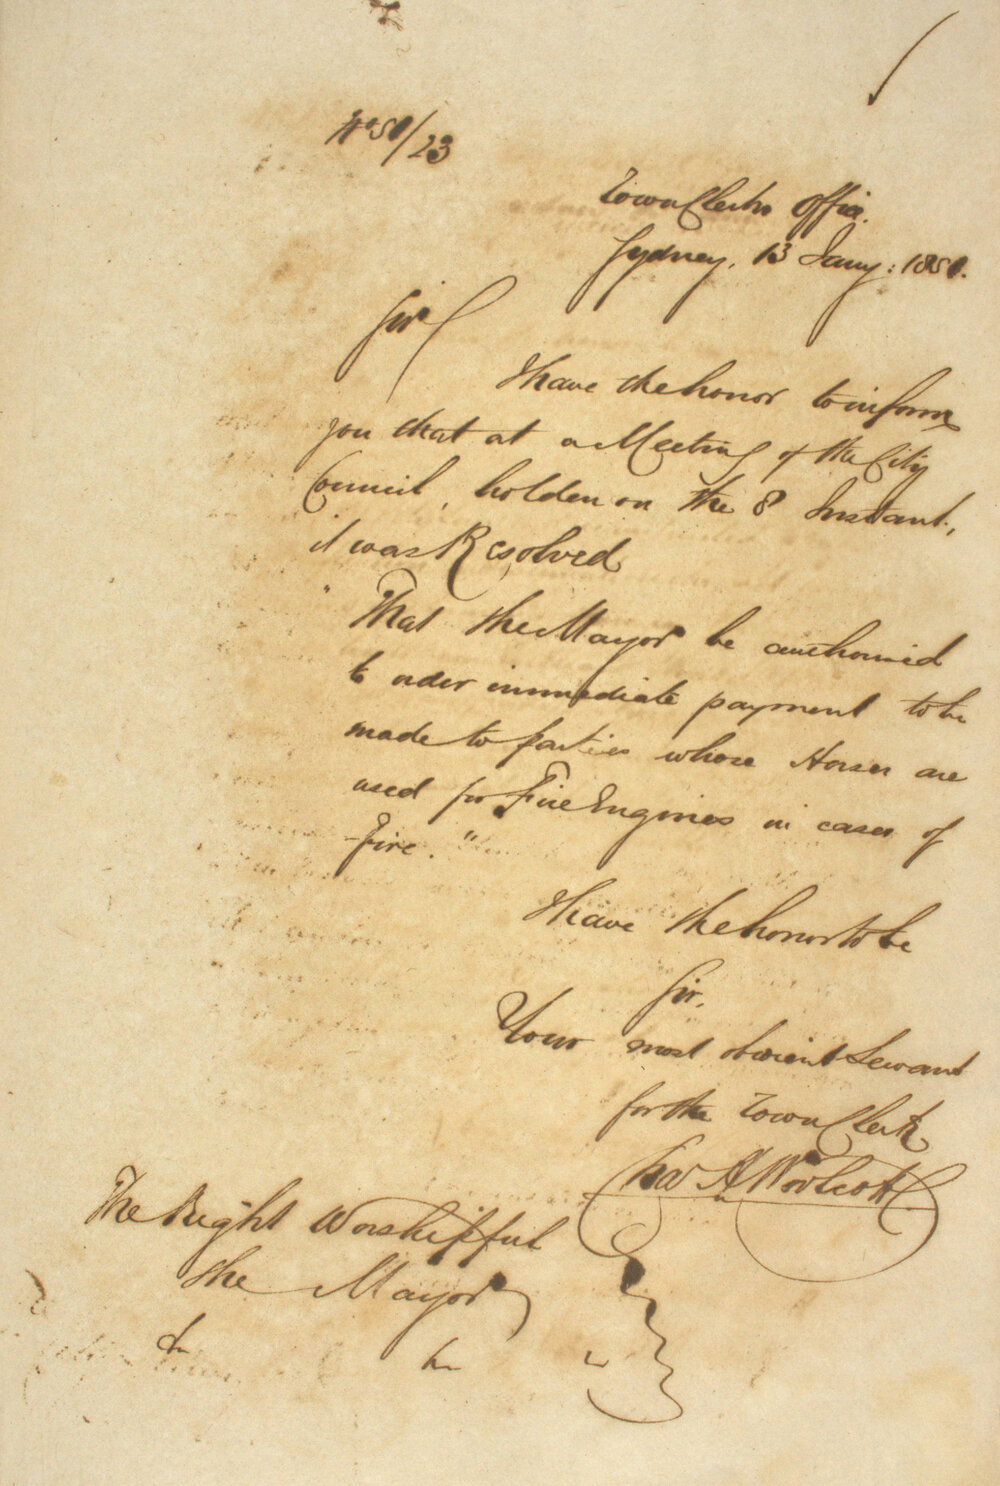 No 50/23
Town Clerks Office.
Sydney, 13 Jany: 1850.
Sir
I have the honor to inform
you that at a Meeting of the City
Council, holden on the 8 Instant,
it was Resolved
" That the Mayor be authorised
to order immediate payment to be
made to parties whose Horses are
used for Fire Engines in cases of
Fire."
I have the honor to be
Sir.
Your most obedient Servant
for the Town Clerk
Chas A Woolcott
The Right Worshipful
the Mayor